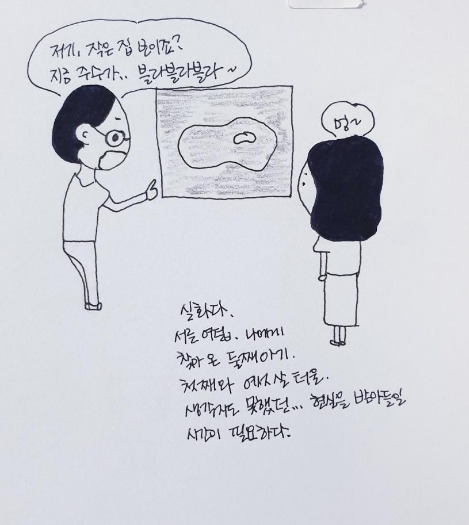 저기, 작은 집 보이죠?
지금 주수가.. 블라블라블라~
멍~
실화다.
서른 여덟. 나에게
찾아 온 둘째아기.
첫째와 여섯살 터울.
생각지도 못했던... 현실을 받아들일
시간이 필요하다.